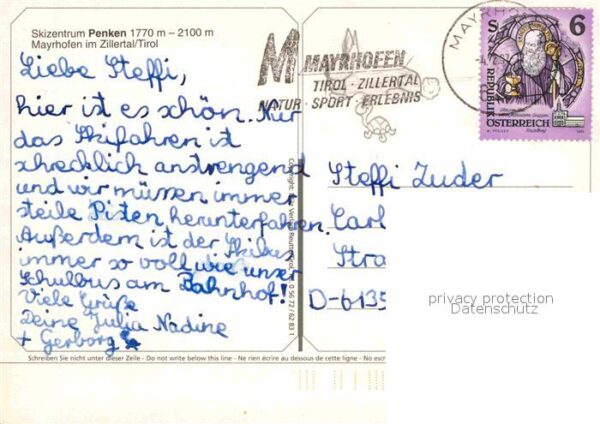 Skizentrum Penken 1770 m – 2100 m
Mayrhofen im Zillertal/Tirol
Liebe Steffi,
hier ist es schön. Nur
das Skifahren ist
schrecklich anstrengend
und wir müssen immer
steile Pisten herunterfahren.
Außerdem ist der Skibus
immer so voll wie unser
Schulbus am Bahnhof!
Viele Grüße
Deine Julia Nadine
+ Gerborg
M MAYRHOFEN
TIROL · ZILLERTAL
NATUR · SPORT · ERLEBNIS
MAYRHO
S 6
REPUBLIK
ÖSTERREICH
Steffi Zuder
Carl
Stra
D-6135
privacy protection
Datenschutz
Schreiben Sie nicht unter dieser Zeile - Do not write below this line - Ne rien écrire au dessous de cette ligne - No esc